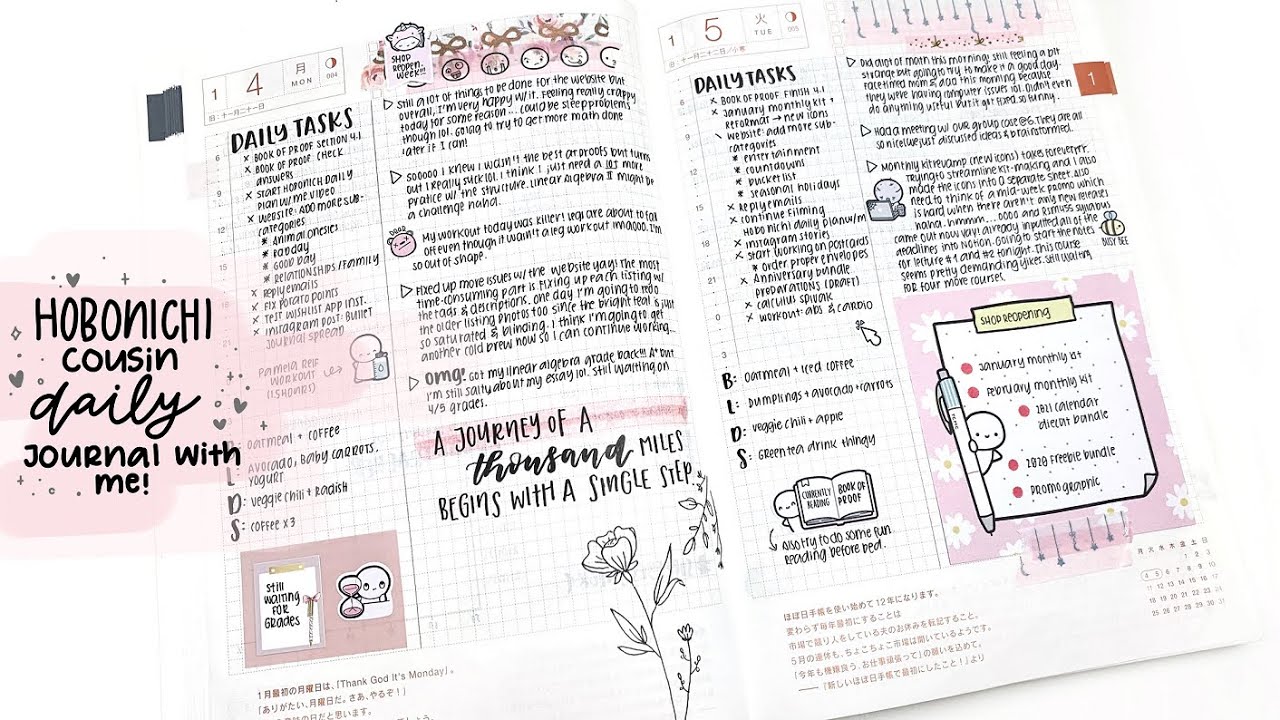 HOBONICHI
cousin
daily
JOURNAL WITH
me!
1 4 月
MON 004
旧:十一月二十一日
SHOP
REOPEN
WEEK!!!
DAILY TASKS
x BOOK OF PROOF SECTION 4.1
x BOOK OF PROOF CHECK
answers
x START HOBONICHI DAILY
plan w/ me video
x Website: ADD MORE SUB-
categories
* Animal onesies
* Bad day
* GOOD DAY
* Relationships/Family
x Reply emails
x Fix potato points
x Test wishlist app inst.
x Instagram post: Bullet
Journal Spread
Pamela Reif
workout
(1.5 HOURS)
B: oatmeal + coffee
L: avocado, baby carrots,
yogurt
D: veggie chili + radish
S: coffee x3
Still
waiting
for
grades
Still a lot of things to be done for the website but
overall, I'm very happy w/ it. Feeling really crappy
today for some reason... could be sleep problems
though lol. Going to try to get more math done
later if I can!
Sooooo I knew I wasn't the best at proofs but turns
out I really suck lol. I think I just need a lot more
practice w/ the structure. Linear Algebra II might be
a challenge haha.
My workout today was killer! Legs are about to fall
off even though it wasn't a leg workout lmaooo. I'm
so out of shape.
Fixed up more issues w/ the website yay! The most
time-consuming part is fixing up each listing w/
the tags & descriptions. One day I'm going to redo
the older listing photos too since the bright teal is just
so saturated & blinding. I think I'm going to get
another cold brew now so I can continue working...
OMG! Got my linear algebra grade back!!! A+ but
I'm still salty about my essay lol. Still waiting on
4/5 grades.
A JOURNEY OF A
thousand MILES
BEGINS WITH A SINGLE STEP.
1月最初の月曜日は、「Thank God It's Monday」。
「ありがたい、月曜日だ。さあ、やるぞ!」
の日だと思います。
1 5 火
TUE 005
旧:十一月二十二日/小寒
DAILY TASKS
x BOOK OF PROOF: FINISH 4.1
x January monthly kit +
reformat → new icons
\ Website: add more sub-
categories
* entertainment
* countdowns
* bucket list
* seasonal holidays
x Reply emails
x continue filming
Hobonichi daily plan w/ me
x instagram stories
x start working on postcards
* order proper envelopes
x Anniversary bundle
preparations (DRAFT)
x calculus spivak
x workout: abs & cardio
B: oatmeal + iced coffee
L: Dumplings + avocado + carrots
D: veggie chili + apple
S: green tea drink thingy
CURRENTLY
READING
BOOK OF
PROOF
Also try to do some fun
reading before bed.
Did a lot of math this morning! Still feeling a bit
strange but going to try to make it a good day.
Facetimed mom & dad this morning because
they were having computer issues lol. Didn't even
do anything useful but it got fixed so funny.
Had a meeting w/ our group case @6. They are all
so nice! We just discussed ideas & brainstormed.
Monthly kit revamp (new icons) takes foreverrrr.
Trying to streamline kit-making and I also
made the icons into a separate sheet. Also
need to think of a mid-week promo which
is hard when there aren't any new releases
haha. Hmmm... oooo and RSM455 syllabus
came out now yay! Already inputted all of the
deadlines into Notion. Going to start the notes
for lecture #1 and #2 tonight. This course
seems pretty demanding yikes. Still waiting
for four more courses.
BUSY BEE
SHOP REOPENING
January monthly kit
February monthly kit
2021 calendar
diecut bundle
2020 Freebie bundle
promo graphic
1
月 火 水 木 金 土 日
1 2 3
4 5 6 7 8 9 10
11 12 13 14 15 16 17
18 19 20 21 22 23 24
25 26 27 28 29 30 31
ほぼ日手帳を使い始めて12年になります。
変わらず毎年最初にすることは
市場で競り人をしている夫のお休みを転記すること。
5月の連休も、ちょこちょこ市場は開いているようです。
「今年も機嫌良う、お仕事頑張って」の願いを込めて。
——『新しいほぼ日手帳で最初にしたこと!』より